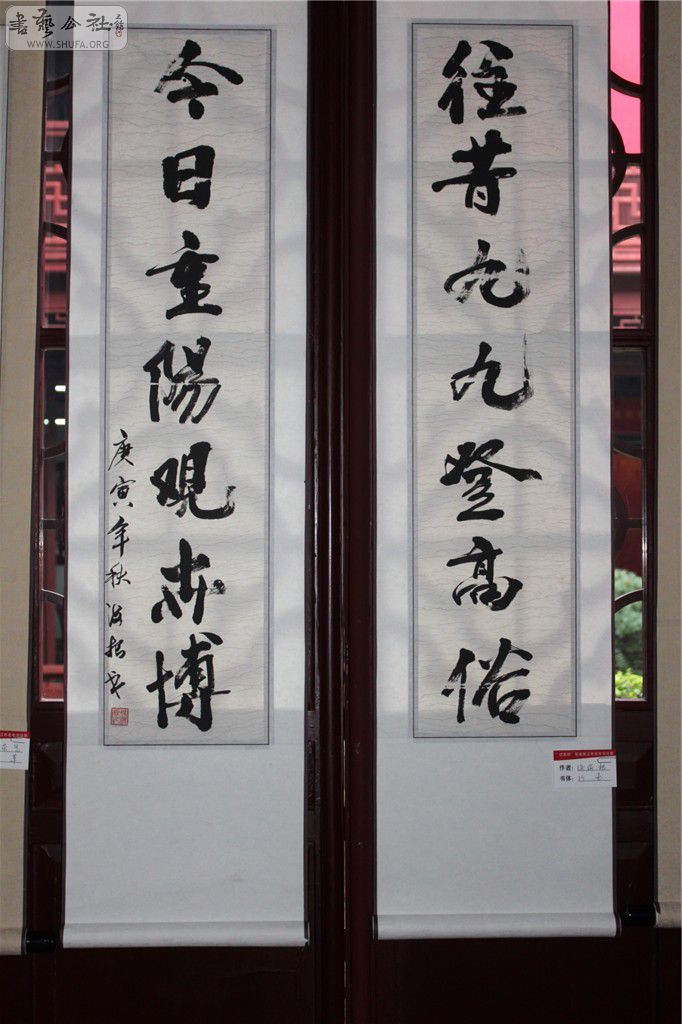 書藝公社
WWW.SHUFA.ORG
往昔九九登高俗
今日重陽观世博
庚寅年秋
作者：
书体：行书